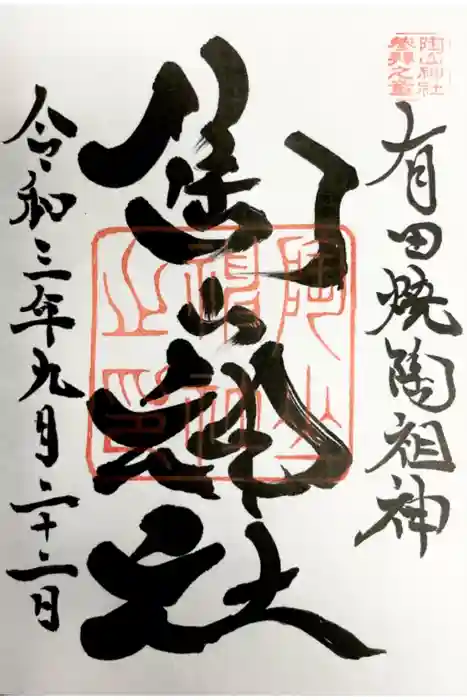 陶山神社
参拝之証
有田焼陶祖神
陶山神社
令和三年九月二十二日